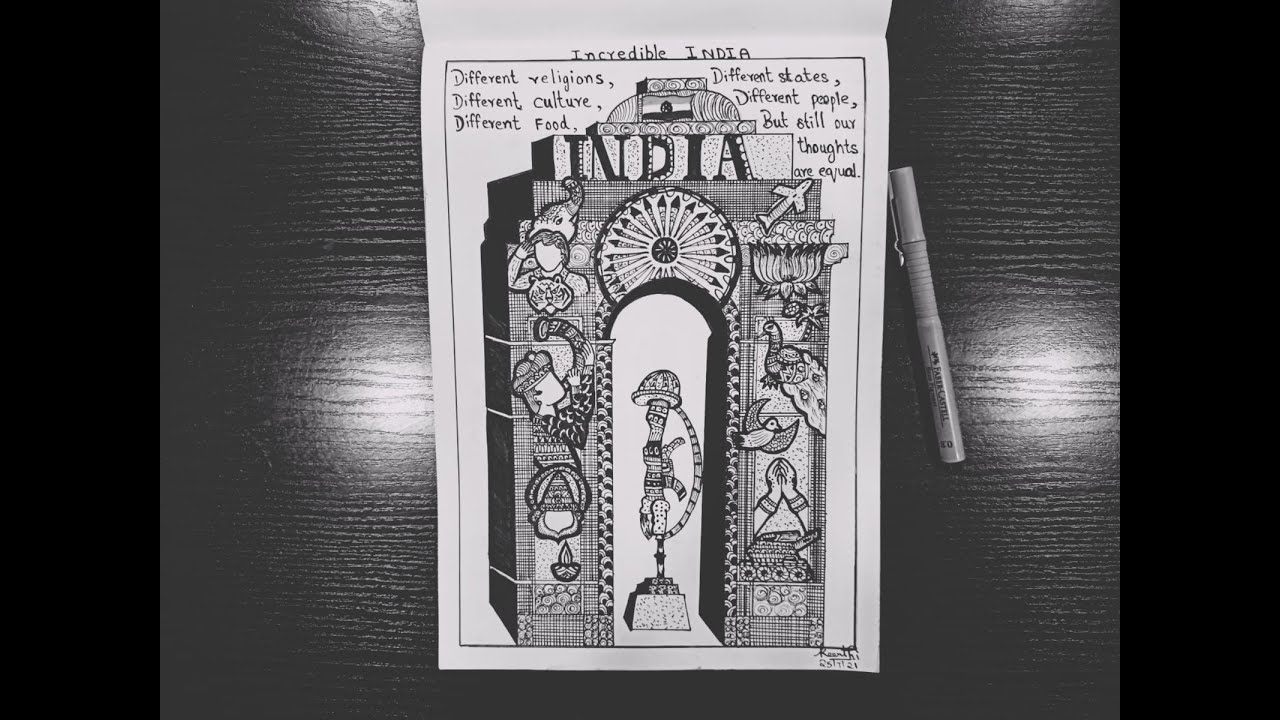 Incredible INDIA
Different religions,
Different culture,
Different Food,
Different states,
Different people,
But still our
thoughts
are equal.
INDIA
FABER-CASTELL
Keerthi
25/7/21